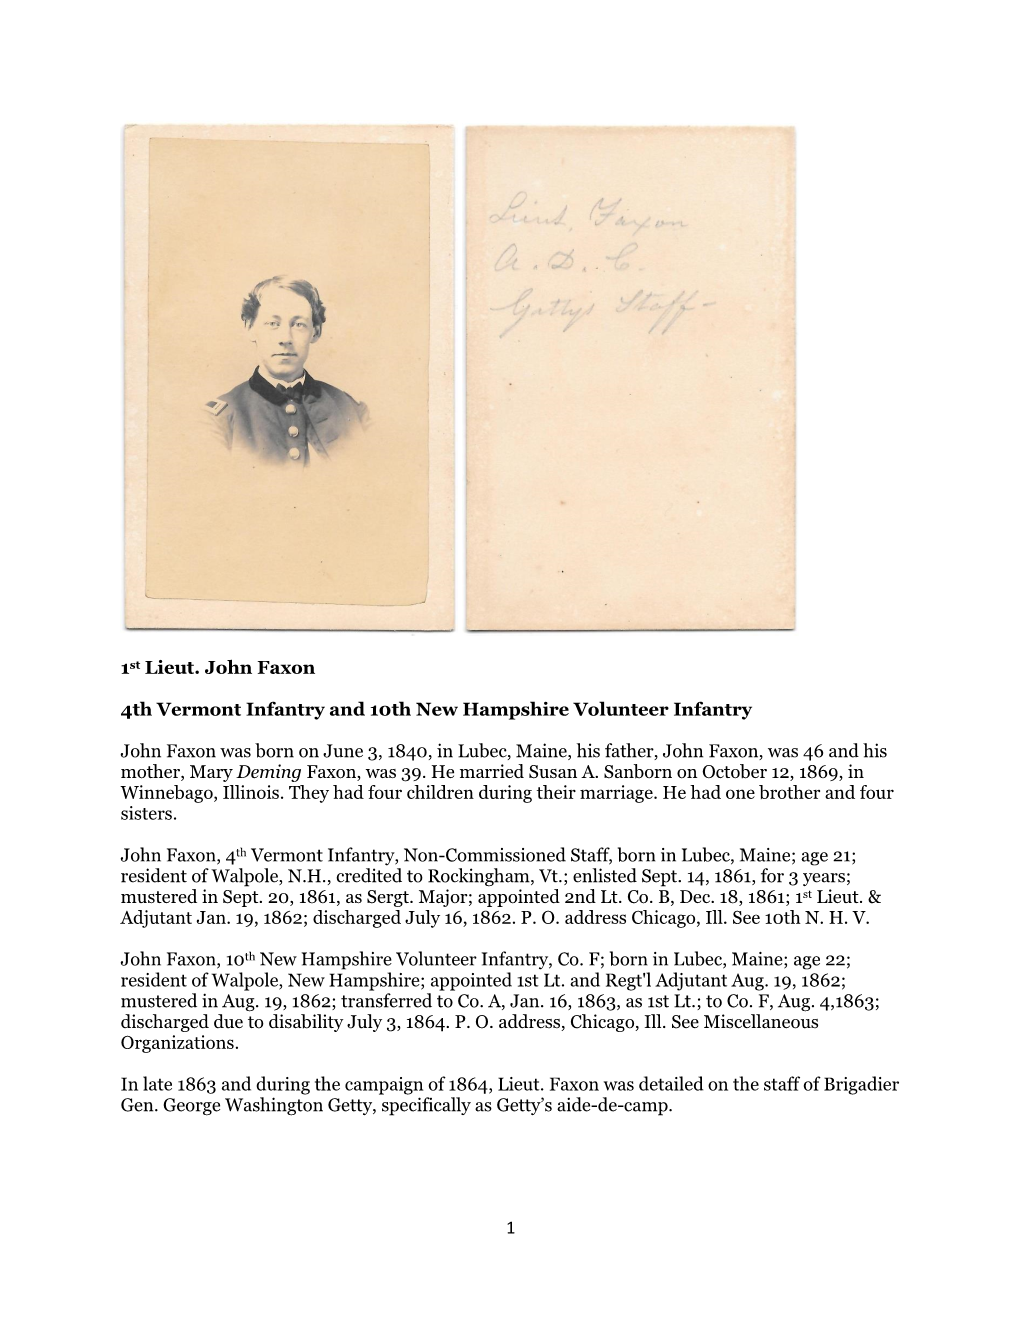 Lieut. Faxon
A. D. C.
Gettys Staff-
1st Lieut. John Faxon
4th Vermont Infantry and 10th New Hampshire Volunteer Infantry
John Faxon was born on June 3, 1840, in Lubec, Maine, his father, John Faxon, was 46 and his
mother, Mary Deming Faxon, was 39. He married Susan A. Sanborn on October 12, 1869, in
Winnebago, Illinois. They had four children during their marriage. He had one brother and four
sisters.
John Faxon, 4th Vermont Infantry, Non-Commissioned Staff, born in Lubec, Maine; age 21;
resident of Walpole, N.H., credited to Rockingham, Vt.; enlisted Sept. 14, 1861, for 3 years;
mustered in Sept. 20, 1861, as Sergt. Major; appointed 2nd Lt. Co. B, Dec. 18, 1861; 1st Lieut. &
Adjutant Jan. 19, 1862; discharged July 16, 1862. P. O. address Chicago, Ill. See 10th N. H. V.
John Faxon, 10th New Hampshire Volunteer Infantry, Co. F; born in Lubec, Maine; age 22;
resident of Walpole, New Hampshire; appointed 1st Lt. and Regt'l Adjutant Aug. 19, 1862;
mustered in Aug. 19, 1862; transferred to Co. A, Jan. 16, 1863, as 1st Lt.; to Co. F, Aug. 4,1863;
discharged due to disability July 3, 1864. P. O. address, Chicago, Ill. See Miscellaneous
Organizations.
In late 1863 and during the campaign of 1864, Lieut. Faxon was detailed on the staff of Brigadier
Gen. George Washington Getty, specifically as Getty's aide-de-camp.
1